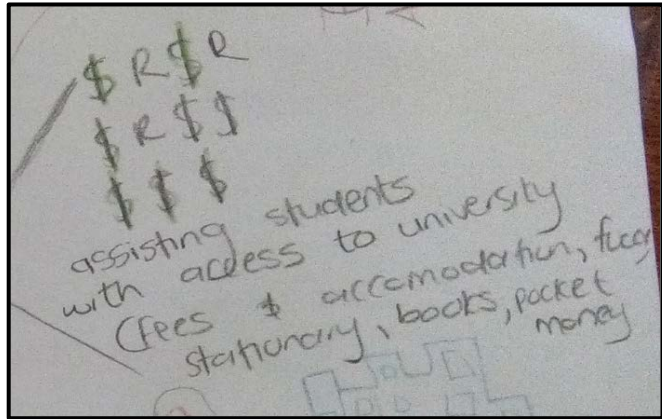 $ R $ R
$ R $ $
$ $ $
assisting students
with access to university
(fees & accomodation,
stationary, books, pocket
money